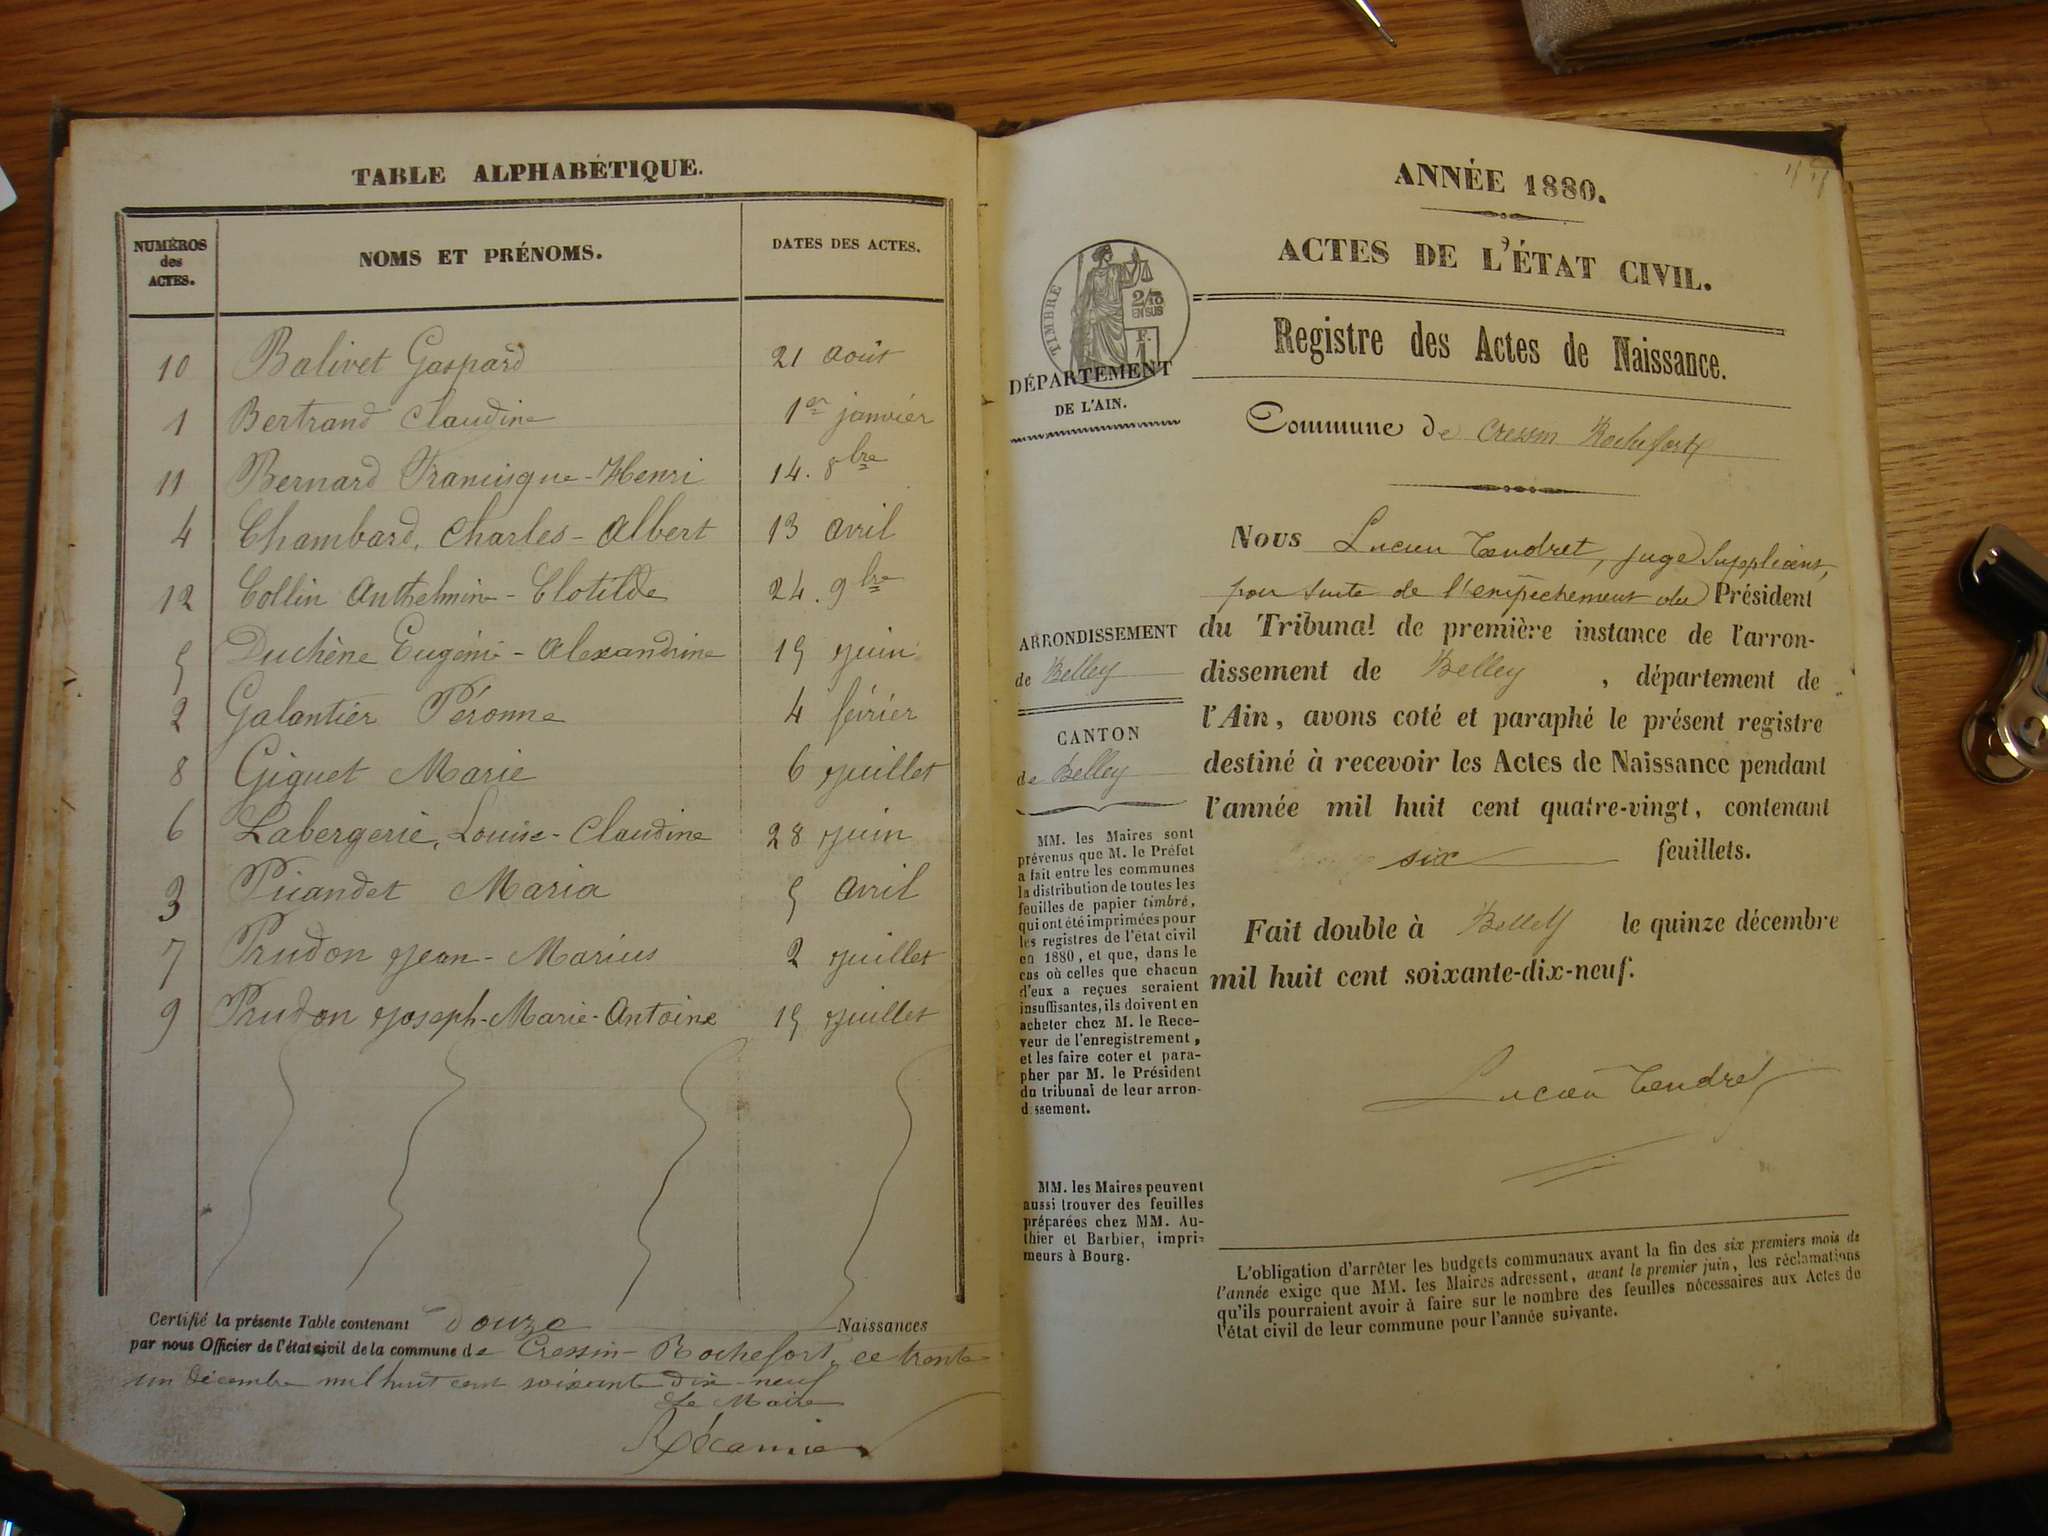 TABLE ALPHABÉTIQUE.
NUMÉROS des ACTES. NOMS ET PRÉNOMS. DATES DES ACTES.
10 Balivet Gaspard 21 août
1 Bertrand Claudine 1er janvier
11 Bernard Francisque-Henri 14. 8bre
4 Chambard, Charles-Albert 13 avril
12 Collin Anthelmine-Clotilde 24. 9bre
5 Duchêne Eugénie-Alexandrine 15 juin
2 Galantier Péronne 4 février
8 Giguet Marie 6 juillet
6 Labergerie, Louise-Claudine 28 juin
3 Picandet Maria 5 avril
7 Prudon Jean-Marius 2 juillet
9 Prudon Joseph-Marie-Antoine 15 juillet
Certifié la présente Table contenant douze Naissances
par nous Officier de l'état civil de la commune de Cressin-Rochefort, ce trente
un décembre mil huit cent soixante dix-neuf
Le Maire
Récamier
ANNÉE 1880.
ACTES DE L'ÉTAT CIVIL.
TIMBRE
2/10
EN SUS
F.
1
DÉPARTEMENT
DE L'AIN.
Registre des Actes de Naissance.
Commune de Cressin Rochefort
Nous Lucien Tendret, juge suppléant,
par suite de l'empêchement du Président
du Tribunal de première instance de l'arron-
dissement de Belley, département de
l'Ain, avons coté et paraphé le présent registre
destiné à recevoir les Actes de Naissance pendant
l'année mil huit cent quatre-vingt, contenant
six feuillets.
Fait double à Belley le quinze décembre
mil huit cent soixante-dix-neuf.
Lucien Tendret
ARRONDISSEMENT
de Belley
CANTON
de Belley
MM. les Maires sont
prévenus que M. le Préfet
a fait entre les communes
la distribution de toutes les
feuilles de papier timbré,
qui ont été imprimées pour
les registres de l'état civil
en 1880, et que, dans le
cas où celles que chacun
d'eux a reçues seraient
insuffisantes, ils doivent en
acheter chez M. le Rece-
veur de l'enregistrement,
et les faire coter et para-
pher par M. le Président
du tribunal de leur arron-
dissement.
MM. les Maires peuvent
aussi trouver des feuilles
préparées chez MM. Au-
thier et Barbier, impri-
meurs à Bourg.
L'obligation d'arrêter les budgets communaux avant la fin des six premiers mois de
l'année exige que MM. les Maires adressent, avant le premier juin, les réclamations
qu'ils pourraient avoir à faire sur le nombre des feuilles nécessaires aux Actes de
l'état civil de leur commune pour l'année suivante.